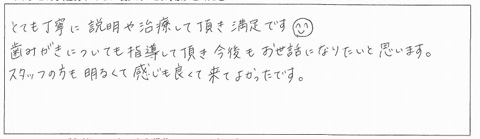 とても丁寧に説明や治療して頂き満足です☺
歯みがきについても指導して頂き今後もお世話になりたいと思います。
スタッフの方も明るくて感じも良くて来てよかったです。